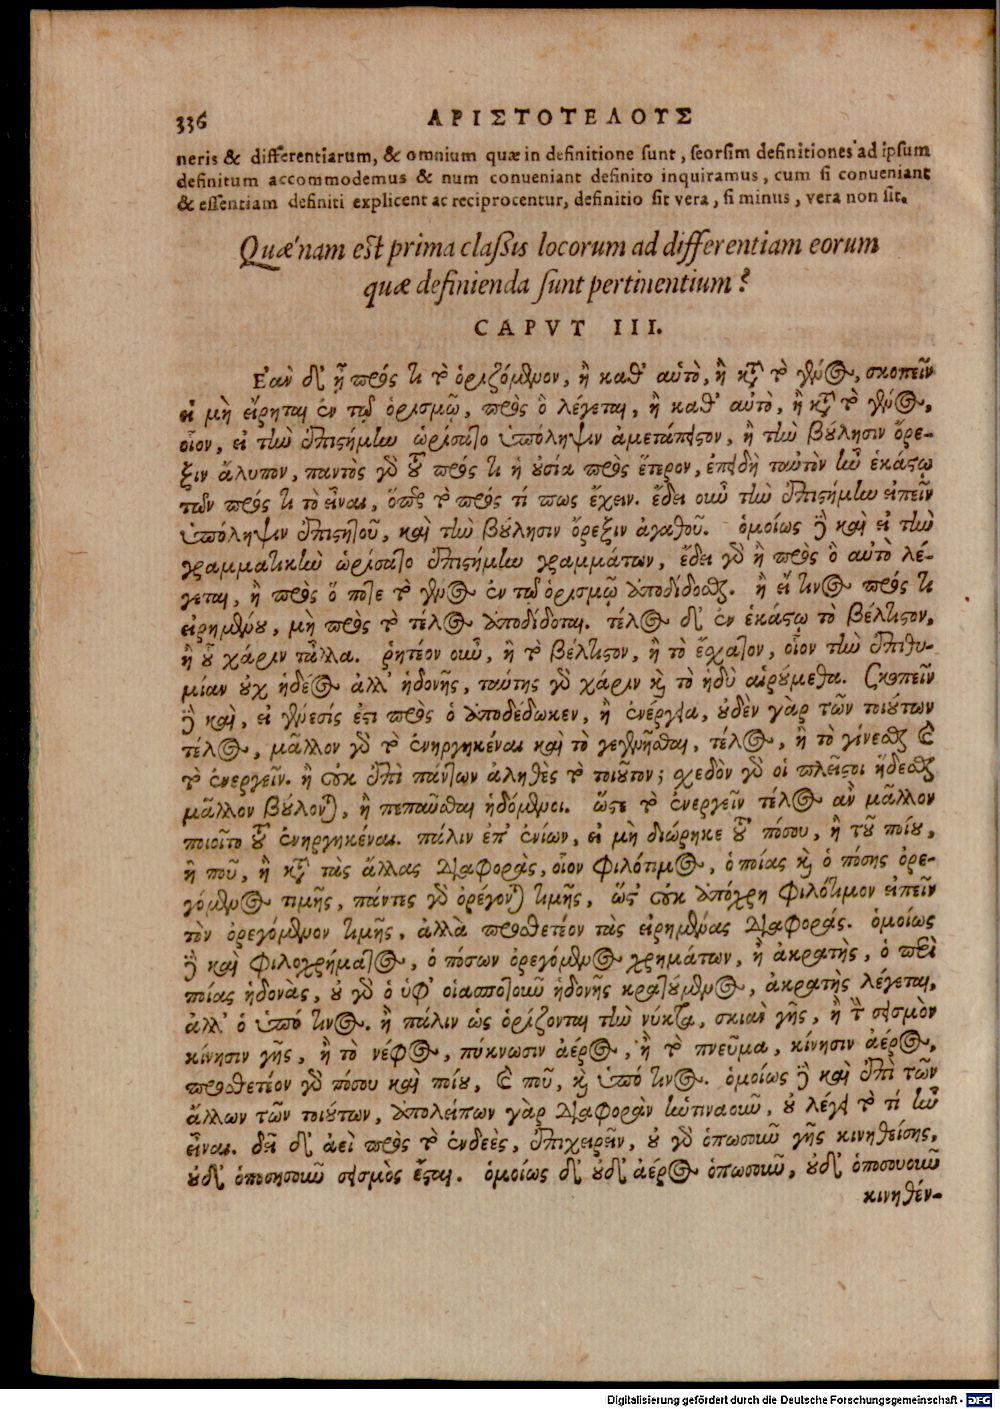 336 ΑΡΙΣΤΟΤΕΛΟΥΣ
neris & differentiarum, & omnium quæ in definitione sunt, seorsim definitiones ad ipsum
definitum accommodemus & num conueniant definito inquiramus, cum si conueniant
& essentiam definiti explicent ac reciprocentur, definitio sit vera, si minus, vera non sit.
Quænam est prima classis locorum ad differentiam eorum
quæ definienda sunt pertinentium?
CAPVT III.
Ἐὰν δ' ᾖ πρός τι τὸ ὁριζόμενον, ἢ καθ' αὑτὸ, ἢ κατὰ τὸ γένος, σκοπεῖν
εἰ μὴ εἴρηται ἐν τῷ ὁρισμῷ, πρὸς ὃ λέγεται, ἢ καθ' αὑτὸ, ἢ κατὰ τὸ γένος,
οἷον, εἰ τὴν ἐπιστήμην ὡρίσατο ὑπόληψιν ἀμετάπειστον, ἢ τὴν βούλησιν ὄρε-
ξιν ἄλυπον, παντὸς γὰρ τοῦ πρός τι ἡ οὐσία πρὸς ἕτερον, ἐπειδὴ ταὐτὸν ἦν ἑκάστῳ
τῶν πρός τι τὸ εἶναι, ὅπερ τὸ πρός τί πως ἔχειν. ἔδει οὖν τὴν ἐπιστήμην εἰπεῖν
ὑπόληψιν ἐπιστητοῦ, καὶ τὴν βούλησιν ὄρεξιν ἀγαθοῦ. ὁμοίως δὲ καὶ εἰ τὴν
γραμματικὴν ὡρίσατο ἐπιστήμην γραμμάτων, ἔδει γὰρ ἢ πρὸς ὃ αὐτὸ λέ-
γεται, ἢ πρὸς ὅ ποτε τὸ γένος ἐν τῷ ὁρισμῷ ἀποδίδοσθαι. ἢ εἴ τινος πρός τι
εἰρημένου, μὴ πρὸς τὸ τέλος ἀποδίδοται. τέλος δ' ἐν ἑκάστῳ τὸ βέλτιστον,
ἢ οὗ χάριν τἆλλα. ῥητέον οὖν, ἢ τὸ βέλτιστον, ἢ τὸ ἔσχατον, οἷον τὴν ἐπιθυ-
μίαν οὐχ ἡδέος ἀλλ' ἡδονῆς, ταύτης γὰρ χάριν καὶ τὸ ἡδὺ αἱρούμεθα. Σκοπεῖν
δὲ καὶ, εἰ γένεσίς ἐστι πρὸς ὃ ἀποδέδωκεν, ἢ ἐνέργεια, οὐδὲν γὰρ τῶν τοιούτων
τέλος, μᾶλλον γὰρ τὸ ἐνηργηκέναι καὶ τὸ γεγενῆσθαι, τέλος, ἢ τὸ γίνεσθαι καὶ
τὸ ἐνεργεῖν. ἢ οὐκ ἐπὶ πάντων ἀληθὲς τὸ τοιοῦτον; σχεδὸν γὰρ οἱ πλεῖστοι ἥδεσθαι
μᾶλλον βούλονται, ἢ πεπαῦσθαι ἡδόμενοι. ὥστε τὸ ἐνεργεῖν τέλος ἂν μᾶλλον
ποιοῖτο τοῦ ἐνηργηκέναι. πάλιν ἐπ' ἐνίων, εἰ μὴ διώρηκε τοῦ πόσου, ἢ τοῦ ποίου,
ἢ ποῦ, ἢ κατὰ τὰς ἄλλας διαφορὰς, οἷον φιλότιμος, ὁ ποίας καὶ ὁ πόσης ὀρε-
γόμενος τιμῆς, πάντες γὰρ ὀρέγονται τιμῆς, ὥστ' οὐκ ἀπόχρη φιλότιμον εἰπεῖν
τὸν ὀρεγόμενον τιμῆς, ἀλλὰ προσθετέον τὰς εἰρημένας διαφοράς. ὁμοίως
δὲ καὶ φιλοχρήματος, ὁ πόσων ὀρεγόμενος χρημάτων, ἢ ἀκρατὴς, ὁ περὶ
ποίας ἡδονὰς, οὐ γὰρ ὁ ὑφ' οἱασποτοῦν ἡδονῆς κρατούμενος, ἀκρατὴς λέγεται,
ἀλλ' ὁ ὑπό τινος. ἢ πάλιν ὡς ὁρίζονται τὴν νύκτα, σκιὰν γῆς, ἢ τὸν σεισμὸν
κίνησιν γῆς, ἢ τὸ νέφος, πύκνωσιν ἀέρος, ἢ τὸ πνεῦμα, κίνησιν ἀέρος,
προσθετέον γὰρ πόσου καὶ ποίου, καὶ ποῦ, καὶ ὑπό τινος. ὁμοίως δὲ καὶ ἐπὶ τῶν
ἄλλων τῶν τοιούτων, ἀπολείπων γὰρ διαφορὰν ἡντιναοῦν, οὐ λέγει τὸ τί ἦν
εἶναι. δεῖ δ' ἀεὶ πρὸς τὸ ἐνδεὲς, ἐπιχειρεῖν, οὐ γὰρ ὁπωσοῦν γῆς κινηθείσης,
οὐδ' ὁποσησοῦν σεισμὸς ἔσται. ὁμοίως δ' οὐδ' ἀέρος ὁπωσοῦν, οὐδ' ὁποσουοῦν
κινηθέν-
Digitalisierung gefördert durch die Deutsche Forschungsgemeinschaft - DFG